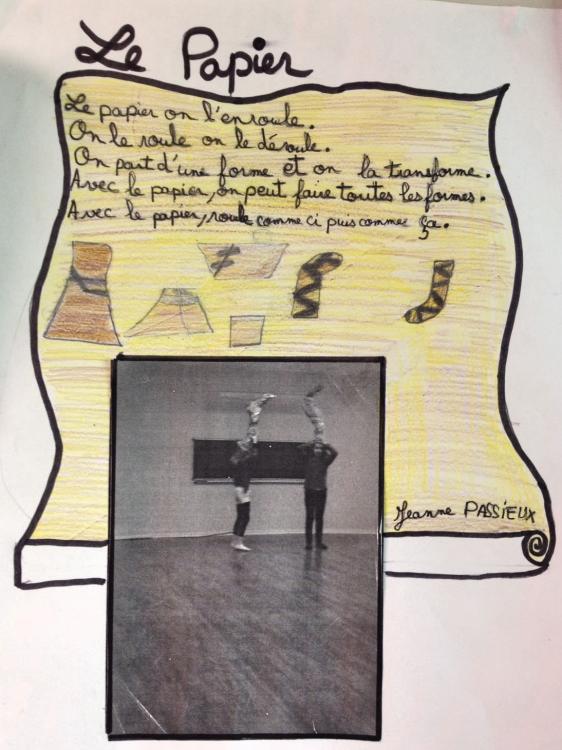 Le Papier
Le papier on l'enroule.
On le roule on le déroule.
On part d'une forme et on la transforme.
Avec le papier, on peut faire toutes les formes.
Avec le papier, roule comme ci puis comme ça.
Jeanne PASSIEUX